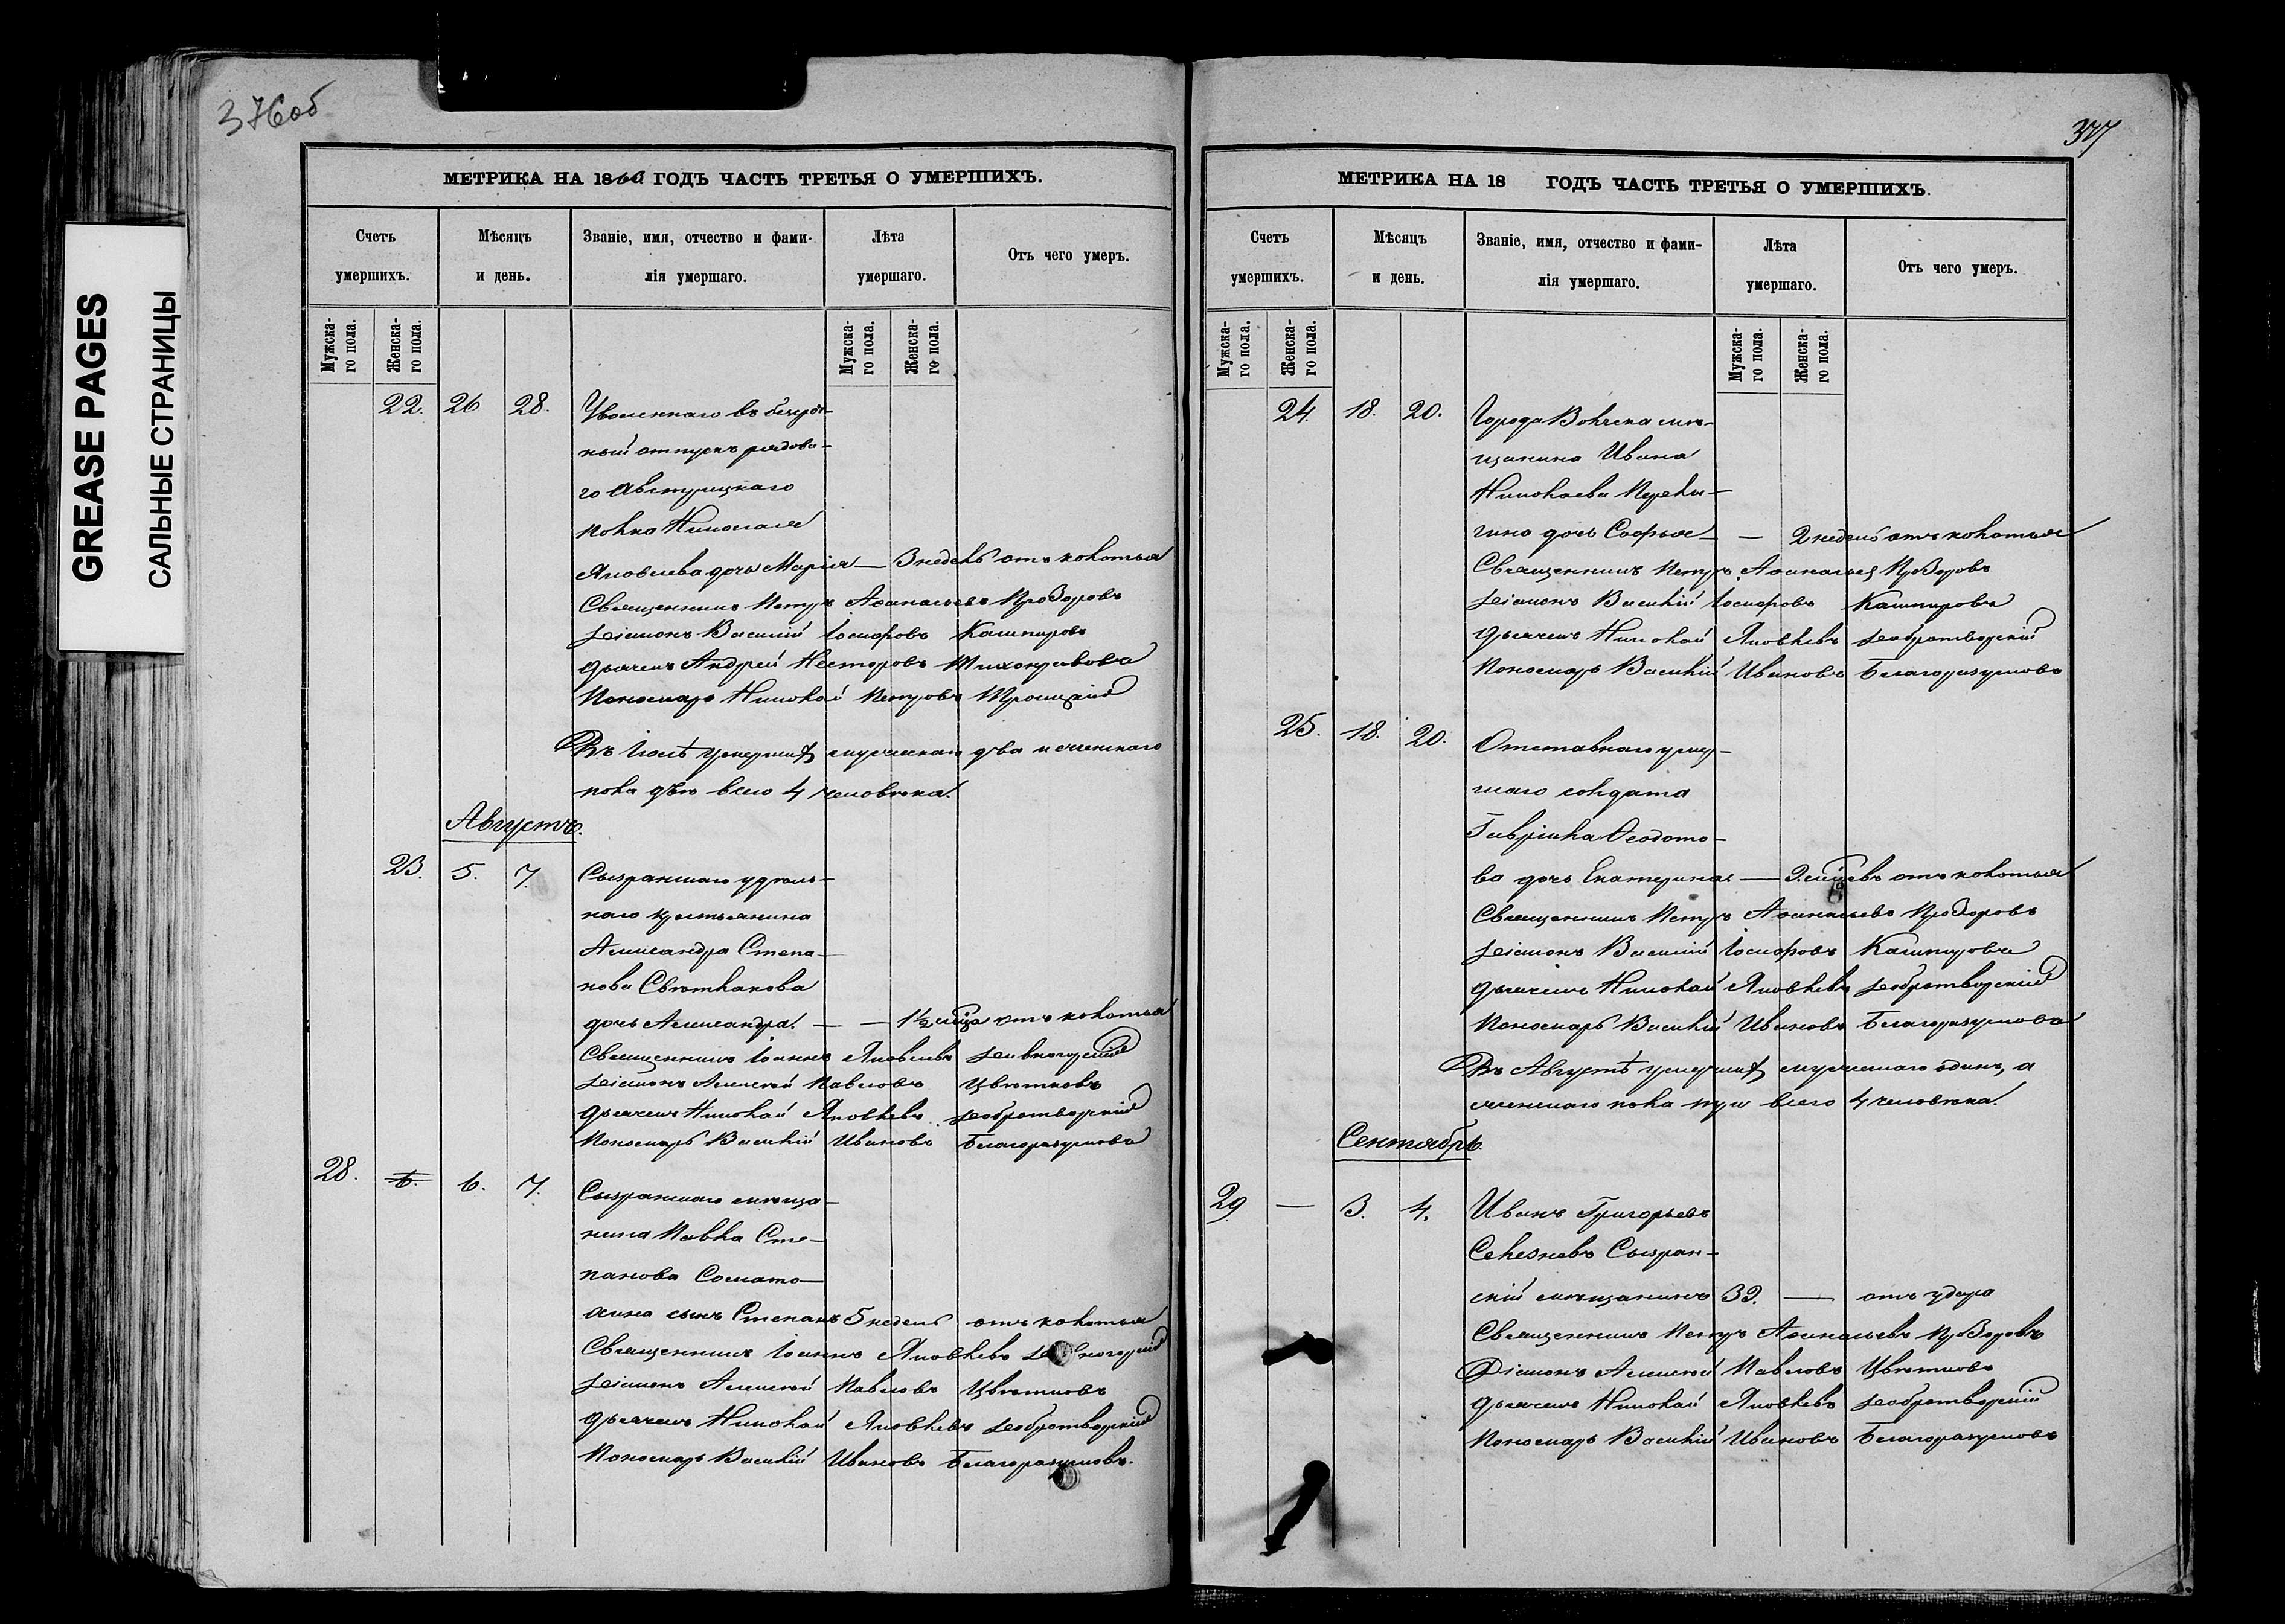 376об
GREASE PAGES
САЛЬНЫЕ СТРАНИЦЫ
МЕТРИКА НА 1860 ГОДЪ ЧАСТЬ ТРЕТЬЯ О УМЕРШИХЪ.
Счетъ умершихъ.
Мѣсяцъ и день.
Званіе, имя, отчество и фами-
лія умершаго.
Лѣта умершаго.
Отъ чего умеръ.
Мужска-
го пола.
Женска-
го пола.
Мужска-
го пола.
Женска-
го пола.
22. 26 28. Уволеннаго въ безсроч-
ный отпускъ рядова-
го Австрицкаго
полка Николая
Яковлева дочь Марія — 3 недель отъ колотья
Священникъ Петръ Аѳанасьевъ Прозоровъ
Діаконъ Василій Іосифовъ Кашпировъ
дьячекъ Андрей Несторовъ Тихонравовъ
Пономарь Николай Петровъ Троицкій
Въ Іюлѣ умершихъ мужскаго два и женскаго
пола двѣ всего 4 человѣка.
Августъ.
23. 5. 7. Сызранскаго удѣль-
наго крестьянина
Александра Степа-
нова Свѣтлакова
дочь Александра. — — 1½ мѣсяца отъ колотья
Священникъ Іоаннъ Яковлевъ Дивногорскій
Діаконъ Алексѣй Павловъ Цвѣтковъ
дьячекъ Николай Яковлевъ Добротворскій
Пономарь Василій Ивановъ Благоразумовъ
28. 6. 6. 7. Сызранскаго мѣща-
нина Павла Сте-
панова Сомато-
хина сынъ Степанъ 5 недель отъ колотья
Священникъ Іоаннъ Яковлевъ Дивногорскій
Діаконъ Алексѣй Павловъ Цвѣтковъ
дьячекъ Николай Яковлевъ Добротворскій
Пономарь Василій Ивановъ Благоразумовъ.
377
МЕТРИКА НА 18 ГОДЪ ЧАСТЬ ТРЕТЬЯ О УМЕРШИХЪ.
Счетъ умершихъ.
Мѣсяцъ и день.
Званіе, имя, отчество и фами-
лія умершаго.
Лѣта умершаго.
Отъ чего умеръ.
Мужска-
го пола.
Женска-
го пола.
Мужска-
го пола.
Женска-
го пола.
24. 18. 20. Города Вольска мѣ-
щанина Ивана
Николаева Перелы-
гина дочь Софья — — 2 недель отъ колотья
Священникъ Петръ Аѳанасьевъ Прозоровъ
Діаконъ Василій Іосифовъ Кашпировъ
дьячекъ Николай Яковлевъ Добротворскій
Пономарь Василій Ивановъ Благоразумовъ
25. 18. 20. Отставнаго умер-
шаго солдата
Гавріила Ѳедото-
ва дочь Екатерина — 9 мѣсяцевъ отъ колотья
Священникъ Петръ Аѳанасьевъ Прозоровъ
Діаконъ Василій Іосифовъ Кашпировъ
дьячекъ Николай Яковлевъ Добротворскій
Пономарь Василій Ивановъ Благоразумовъ
Въ Августѣ умершихъ мужскаго одинъ, а
женскаго пола три всего 4 человѣка.
Сентябрь.
29 — 3. 4. Иванъ Григорьевъ
Селезневъ Сызран-
скій мѣщанинъ 39. — отъ удара
Священникъ Петръ Аѳанасьевъ Прозоровъ
Діаконъ Алексѣй Павловъ Цвѣтковъ
дьячекъ Николай Яковлевъ Добротворскій
Пономарь Василій Ивановъ Благоразумовъ